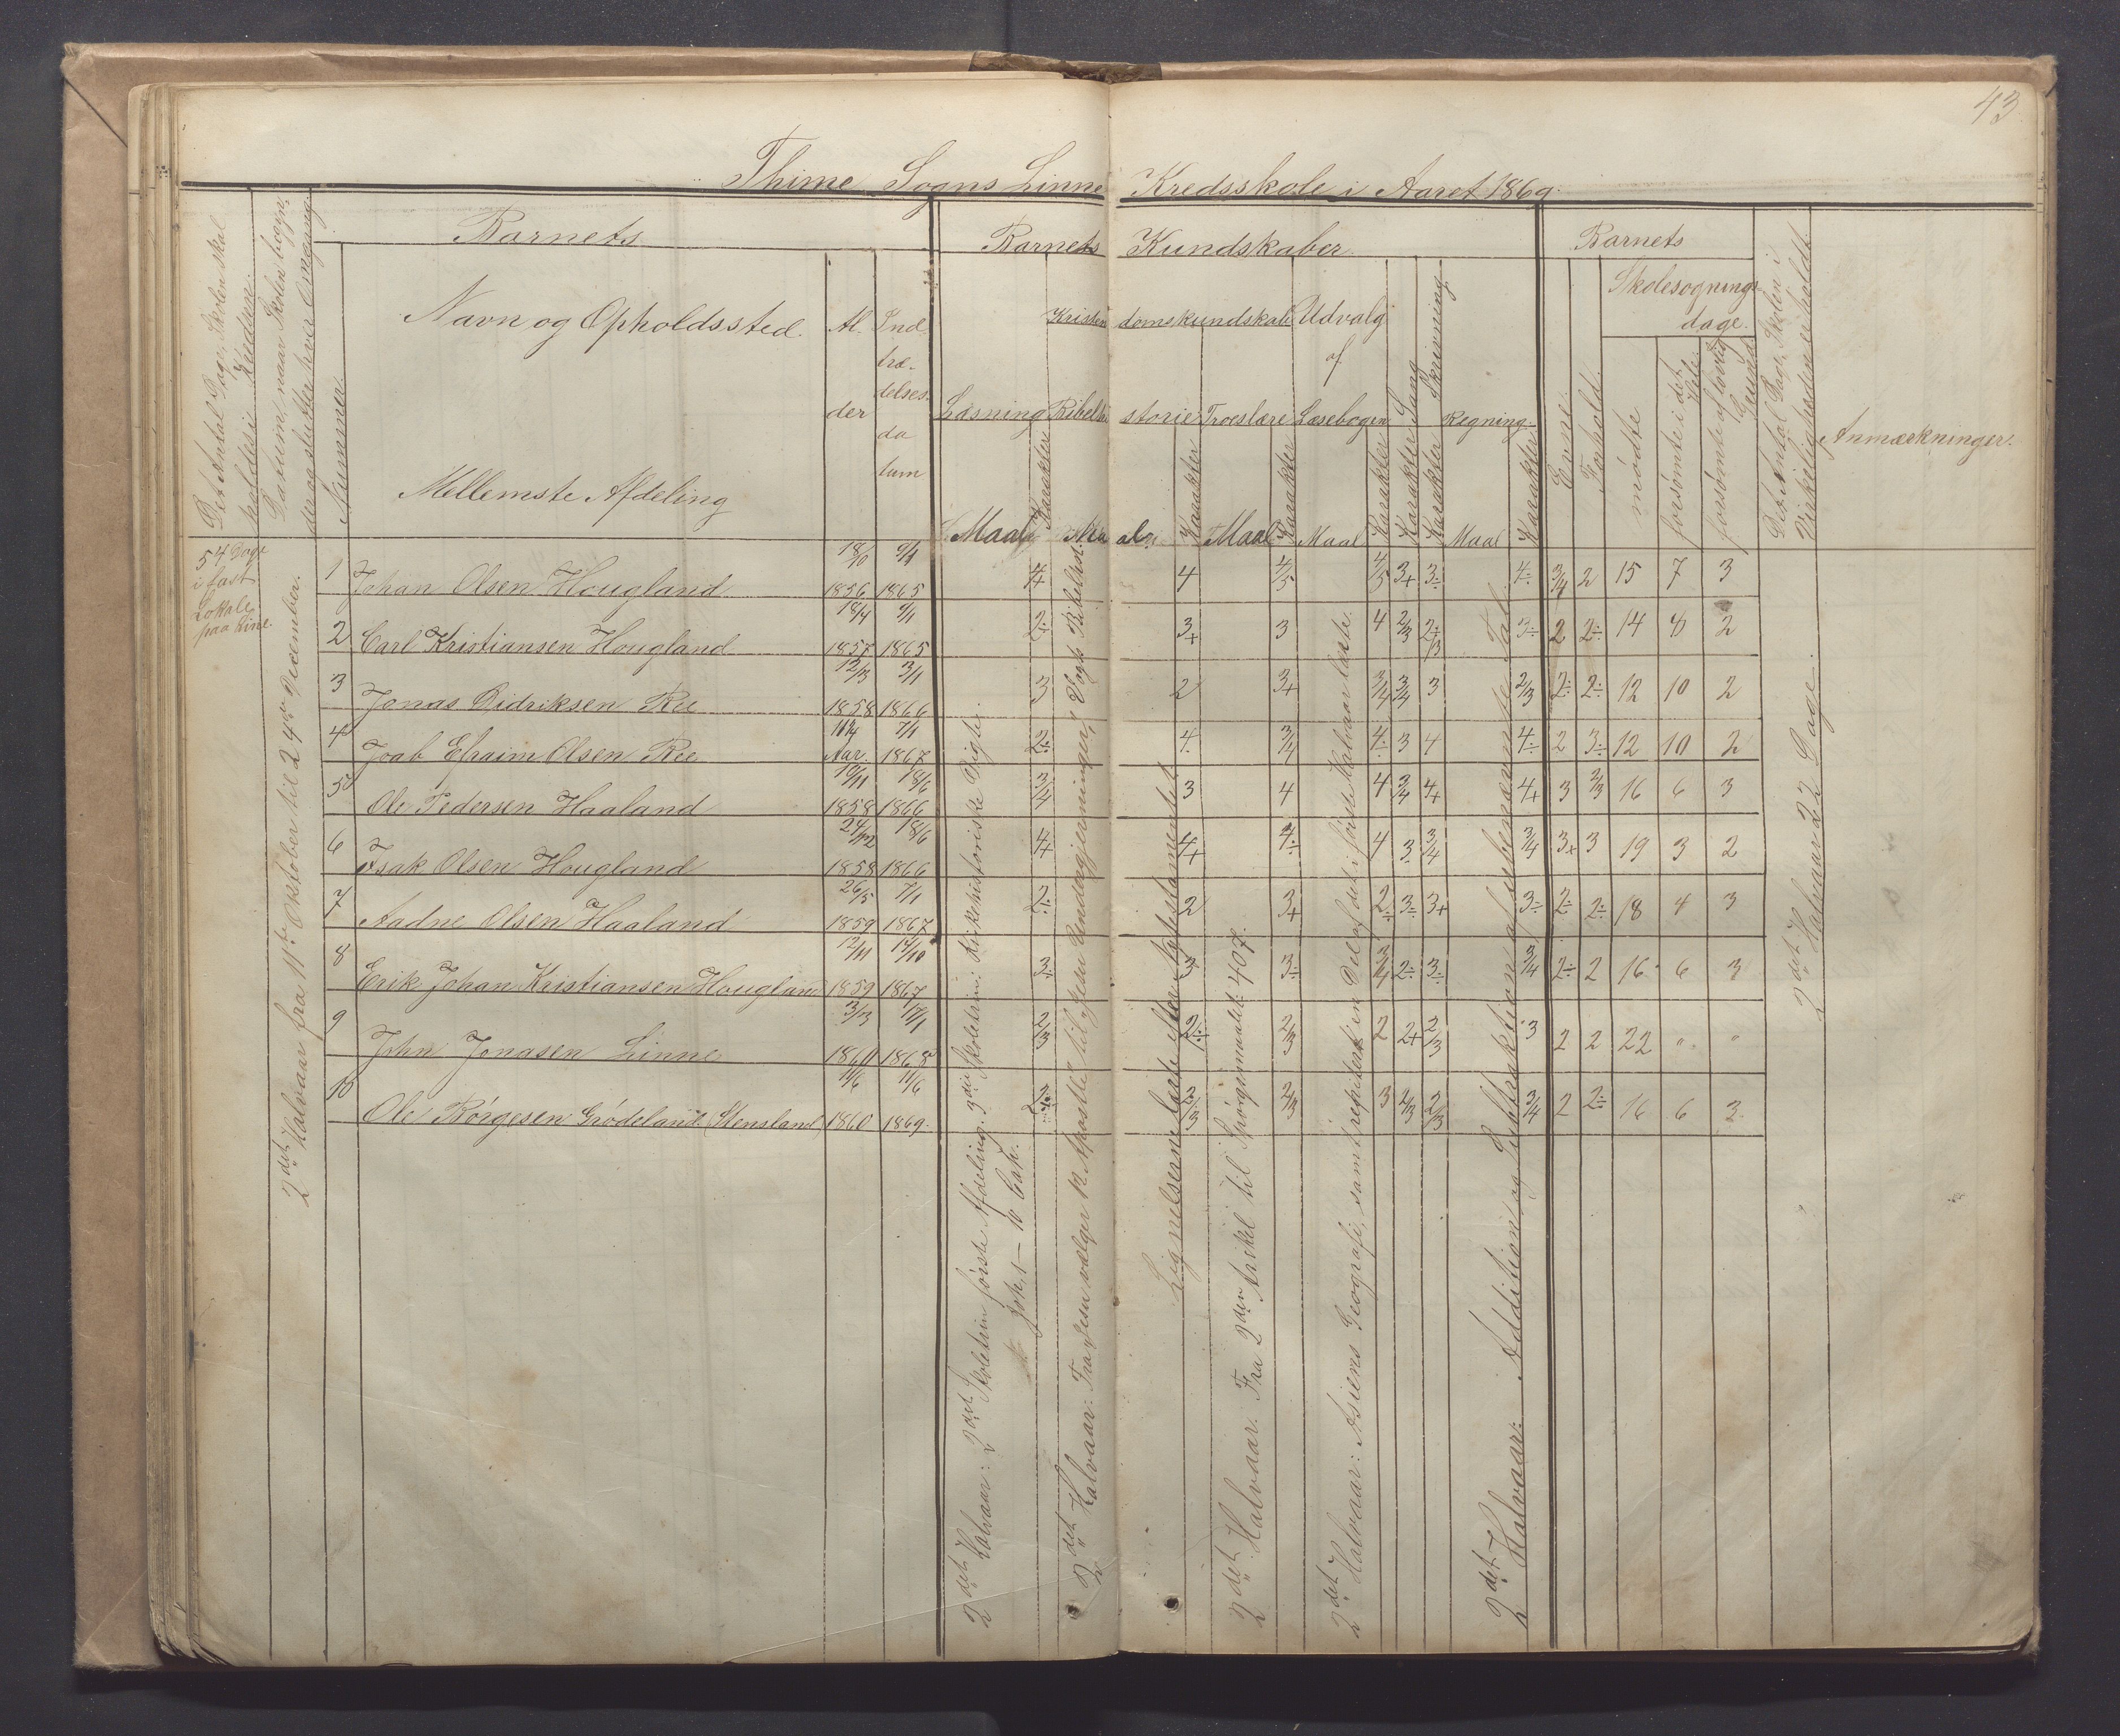 43
Thime Sogns Linne Kredsskole i Aaret 1869.
Det Antal Dage, Skolen skal holdes i Kredsen.
Datum, naar Skolen begynder og slutter hver Omgang.
Nummer.
Barnets
Navn og Opholdssted.
Al-
der
Ind
træ-
delses-
da
tum
Mellemste Afdeling
Barnets Kundskaber.
Læsning
Kristendomskundskab
Bibelhistorie
Troeslære
Udvalg
af
Læsebogen.
Sang
Skrivning.
Regning.
Maal
Karakter
Maal
Karakter
Maal
Karakter
Maal
Karakter
Karakter
Karakter
Maal
Karakter
Barnets
Evne.
Forhold.
Skolesøgnings-
dage.
mødte
forsømte i det Hele.
forsømte af lovlig Grund.
Det Antal Dage, Skolen i Virkeligheden er holdt.
Anmærkninger.
54 Dage
i fast
Lokale
paa Line.
2det Halvaar fra 11te Oktober til 24de December.
1 Johan Olsen Hougland 1856 1865 4+ 4 4/5 4/5 3+ 3÷ 4÷ 3/4 2 15 7 3
2 Carl Kristiansen Hougland 18/4 1857 9/1 1865 2÷ 3+ 3 4 2/3 2÷/3 3÷ 2 2÷ 14 8 2
3 Jonas Didriksen Ree 12/13 1858 3/1 1866 3 2 3+ 3/4 3/4 3 2/3 2÷ 2÷ 12 10 2
4 Joab Efraim Olsen Ree Aar. 7/1 1867 2÷ 4÷ 3/4 4÷ 3 4 4÷ 2 3÷ 12 10 2
5 Ole Pedersen Haaland 19/11 1858 18/6 1866 3/4 3 4 4 3/4 4+ 4+ 3 2/3 16 6 3
6 Isak Olsen Hougland 24/12 1858 18/6 1866 4+ 4+ 4÷ 4 3 3/4 3/4 3+ 3 19 3 2
7 Aadne Olsen Haaland 26/5 1859 7/1 1867 2÷ 2 3+ 2÷ 3÷ 3+ 3÷ 2÷ 2÷ 18 4 3
8 Erik Johan Kristiansen Hougland 12/11 1859 14/10 1867 3÷ 3 3÷ 3/4 2÷ 3÷ 3/4 2÷ 2 16 6 3
9 John Jonasen Linne 3/13 1860 17/1 1868 2/3 2÷ 2/3 2 2+ 2/3 3 2 2 22 " "
10 Ole Børgesen Grødeland (Stensland) 11/6 1860 11/6 1869. 2/3 2/3 3 2/3 2/3 3/4 2 2÷ 16 6 3
2det Halvaar: 2det Skoletrin første Afdeling. 3die Skoletrin: Kirkehistoriske Digte.
Joh. 1-10 Cap.
2det Halvaar: Fra "Jesu vælger 12 Apostle" til "Jesu Undergjerninger", Vogts Bibelhist.
Lignelserne læste efter Nytestamentet
2det Halvaar. Fra 2den Artikel til Spørgsmaalet 407.
2det Halvaar: Asiens Geografi, samt repiteret en Del af det i første Halvaar læste.
2det Halvaar: Addition og Subtraktion af uebenævnte Tal.
2det Halvaar 22 Dage.